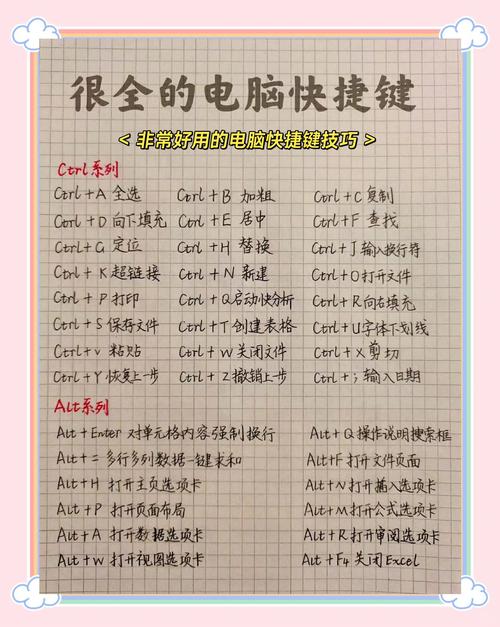 很全的电脑快捷键
< 非常好用的电脑快捷键技巧 >
Ctrl系列
Ctrl+A 全选 Ctrl+B 加粗 Ctrl+C 复制
Ctrl+D 向下填充 Ctrl+E 居中 Ctrl+F 查找
Ctrl+G 定位 Ctrl+H 替换 Ctrl+J 输入换行符
Ctrl+K 超链接 Ctrl+N 新建 Ctrl+O 打开文件
Ctrl+P 打印 Ctrl+Q 启动快分析 Ctrl+R 向右填充
Ctrl+S 保存文件 Ctrl+T 创建表格 Ctrl+U 字体下划线
Ctrl+v 粘贴 Ctrl+W 关闭文件 Ctrl+X 剪切
Ctrl+Y 恢复上一步 Ctrl+Z 撤销上一步 Ctrl+; 输入日期
Alt系列
Alt+Enter 对单元格内容强制换行 Alt+Q 操作说明搜索框
Alt+= 多行多列数据一键求和 Alt+F 打开文件页面
Alt+H 打开主页选项卡 Alt+N 打开插入选项卡
Alt+P 打开页面布局 Alt+M 打开公式选项卡
Alt+A 打开数据选项卡 Alt+R 打开审阅选项卡
Alt+W 打开视图选项卡 Alt+F4 关闭Excel